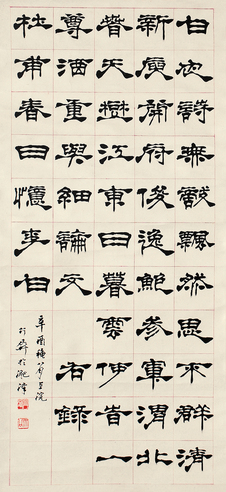 白也詩無敵飄然思不群清
新庾開府俊逸鮑參軍渭北
春天樹江東日暮雲何時一
尊酒重與細論文右錄
杜甫春日憶李白
辛酉